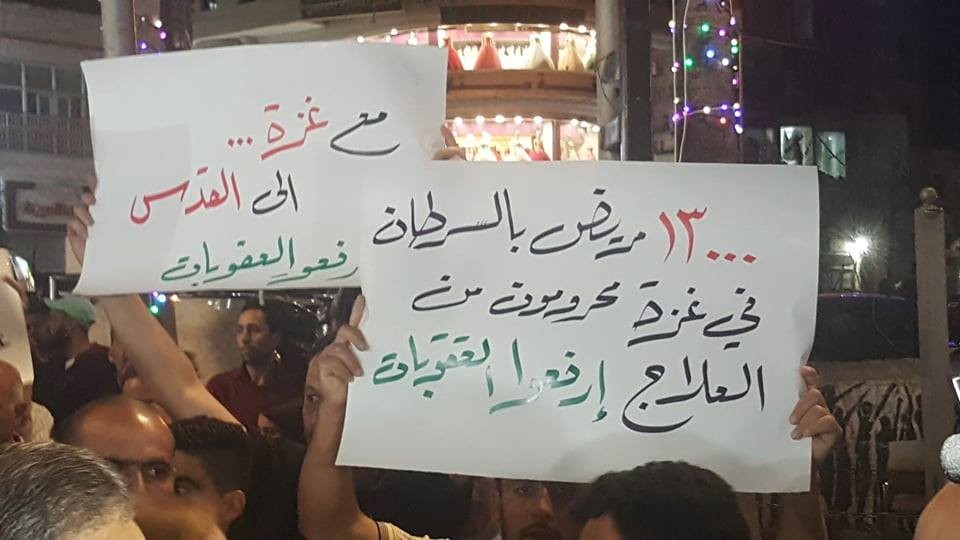 مع غزة...
الى القدس
رفعوا العقوبات
١٣٠٠٠ مريض بالسرطان
في غزة محرومون من
العلاج إرفعوا العقوبات